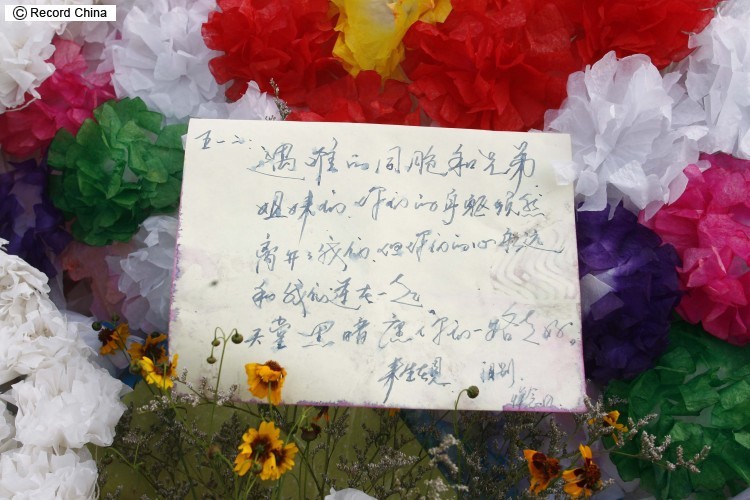 © Record China
五一二:
遇难的同胞和兄弟
姐妹们,你们的身躯虽然
离开了我们,但你们的心永远
和我们连在一起
天堂黑暗 你们一路走好。
来生在见 泪别